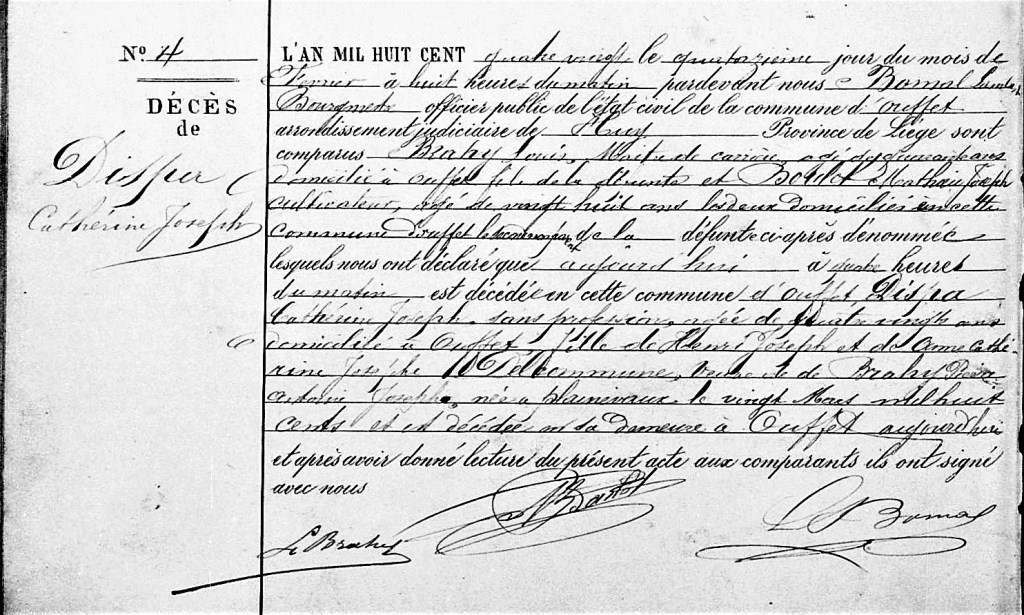 N° 4
DÉCÈS
de
Disper
Cathérine Joseph
L'AN MIL HUIT CENT quatre vingt le quatorzieme jour du mois de
Fevrier à huit heures du matin pardevant nous Bomal
Bourgmestre officier public de l'état civil de la commune d'Ouffet
arrondissement judiciaire de Huy Province de Liége sont
comparus Brahy Louis, Maitre de carrière, agé de ans
domicilié à Ouffet fils de la défunte et Joseph
cultivateur, agé de vingt huit ans les deux domiciliés en cette
commune d'Ouffet de la défunte ci-après dénommée
lesquels nous ont déclaré que aujourd'hui à quatre heures
du matin est décédée en cette commune d'Ouffet, Dispa
Catherine Joseph, sans profession, agée de quatre vingts ans
domicilié à Ouffet fille de Henri Joseph et de Anne Cathé-
rine Josephe Delcommune, veuve de Brahy Pierre
Antoine Joseph, née a plainevaux le vingt Mars mil huit
cents et est décédée en sa demeure à Ouffet aujourd'hui
et après avoir donné lecture du présent acte aux comparants ils ont signé
avec nous
L. Brahy
Bomal